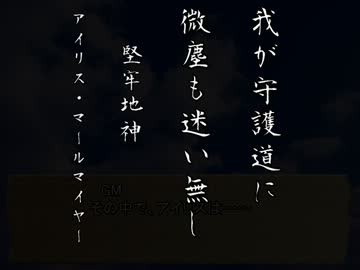 我が守護道に
微塵も迷い無し
堅牢地神
アイリス・マールマイヤー
GM
その中で、アイリスは……